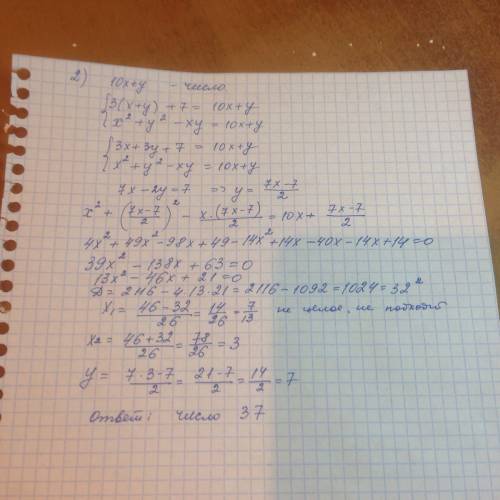 2) 10x+y - число
{3(x+y)+7 = 10x+y
{x²+y²-xy = 10x+y
{3x+3y+7 = 10x+y
{x²+y²-xy = 10x+y
7x-2y=7 => y = (7x-7)/2
x² + ((7x-7)/2)² - x·(7x-7)/2 = 10x + (7x-7)/2
4x²+49x²-98x+49-14x²+14x-40x-14x+14=0
39x²-138x+63=0
13x²-46x+21=0
D = 2116-4·13·21=2116-1092=1024=32²
x₁ = (46-32)/26 = 14/26 = 7/13 не целое, не подходит
x₂ = (46+32)/26 = 78/26 = 3
y = (7·3-7)/2 = (21-7)/2 = 14/2 = 7
Ответ: число 37